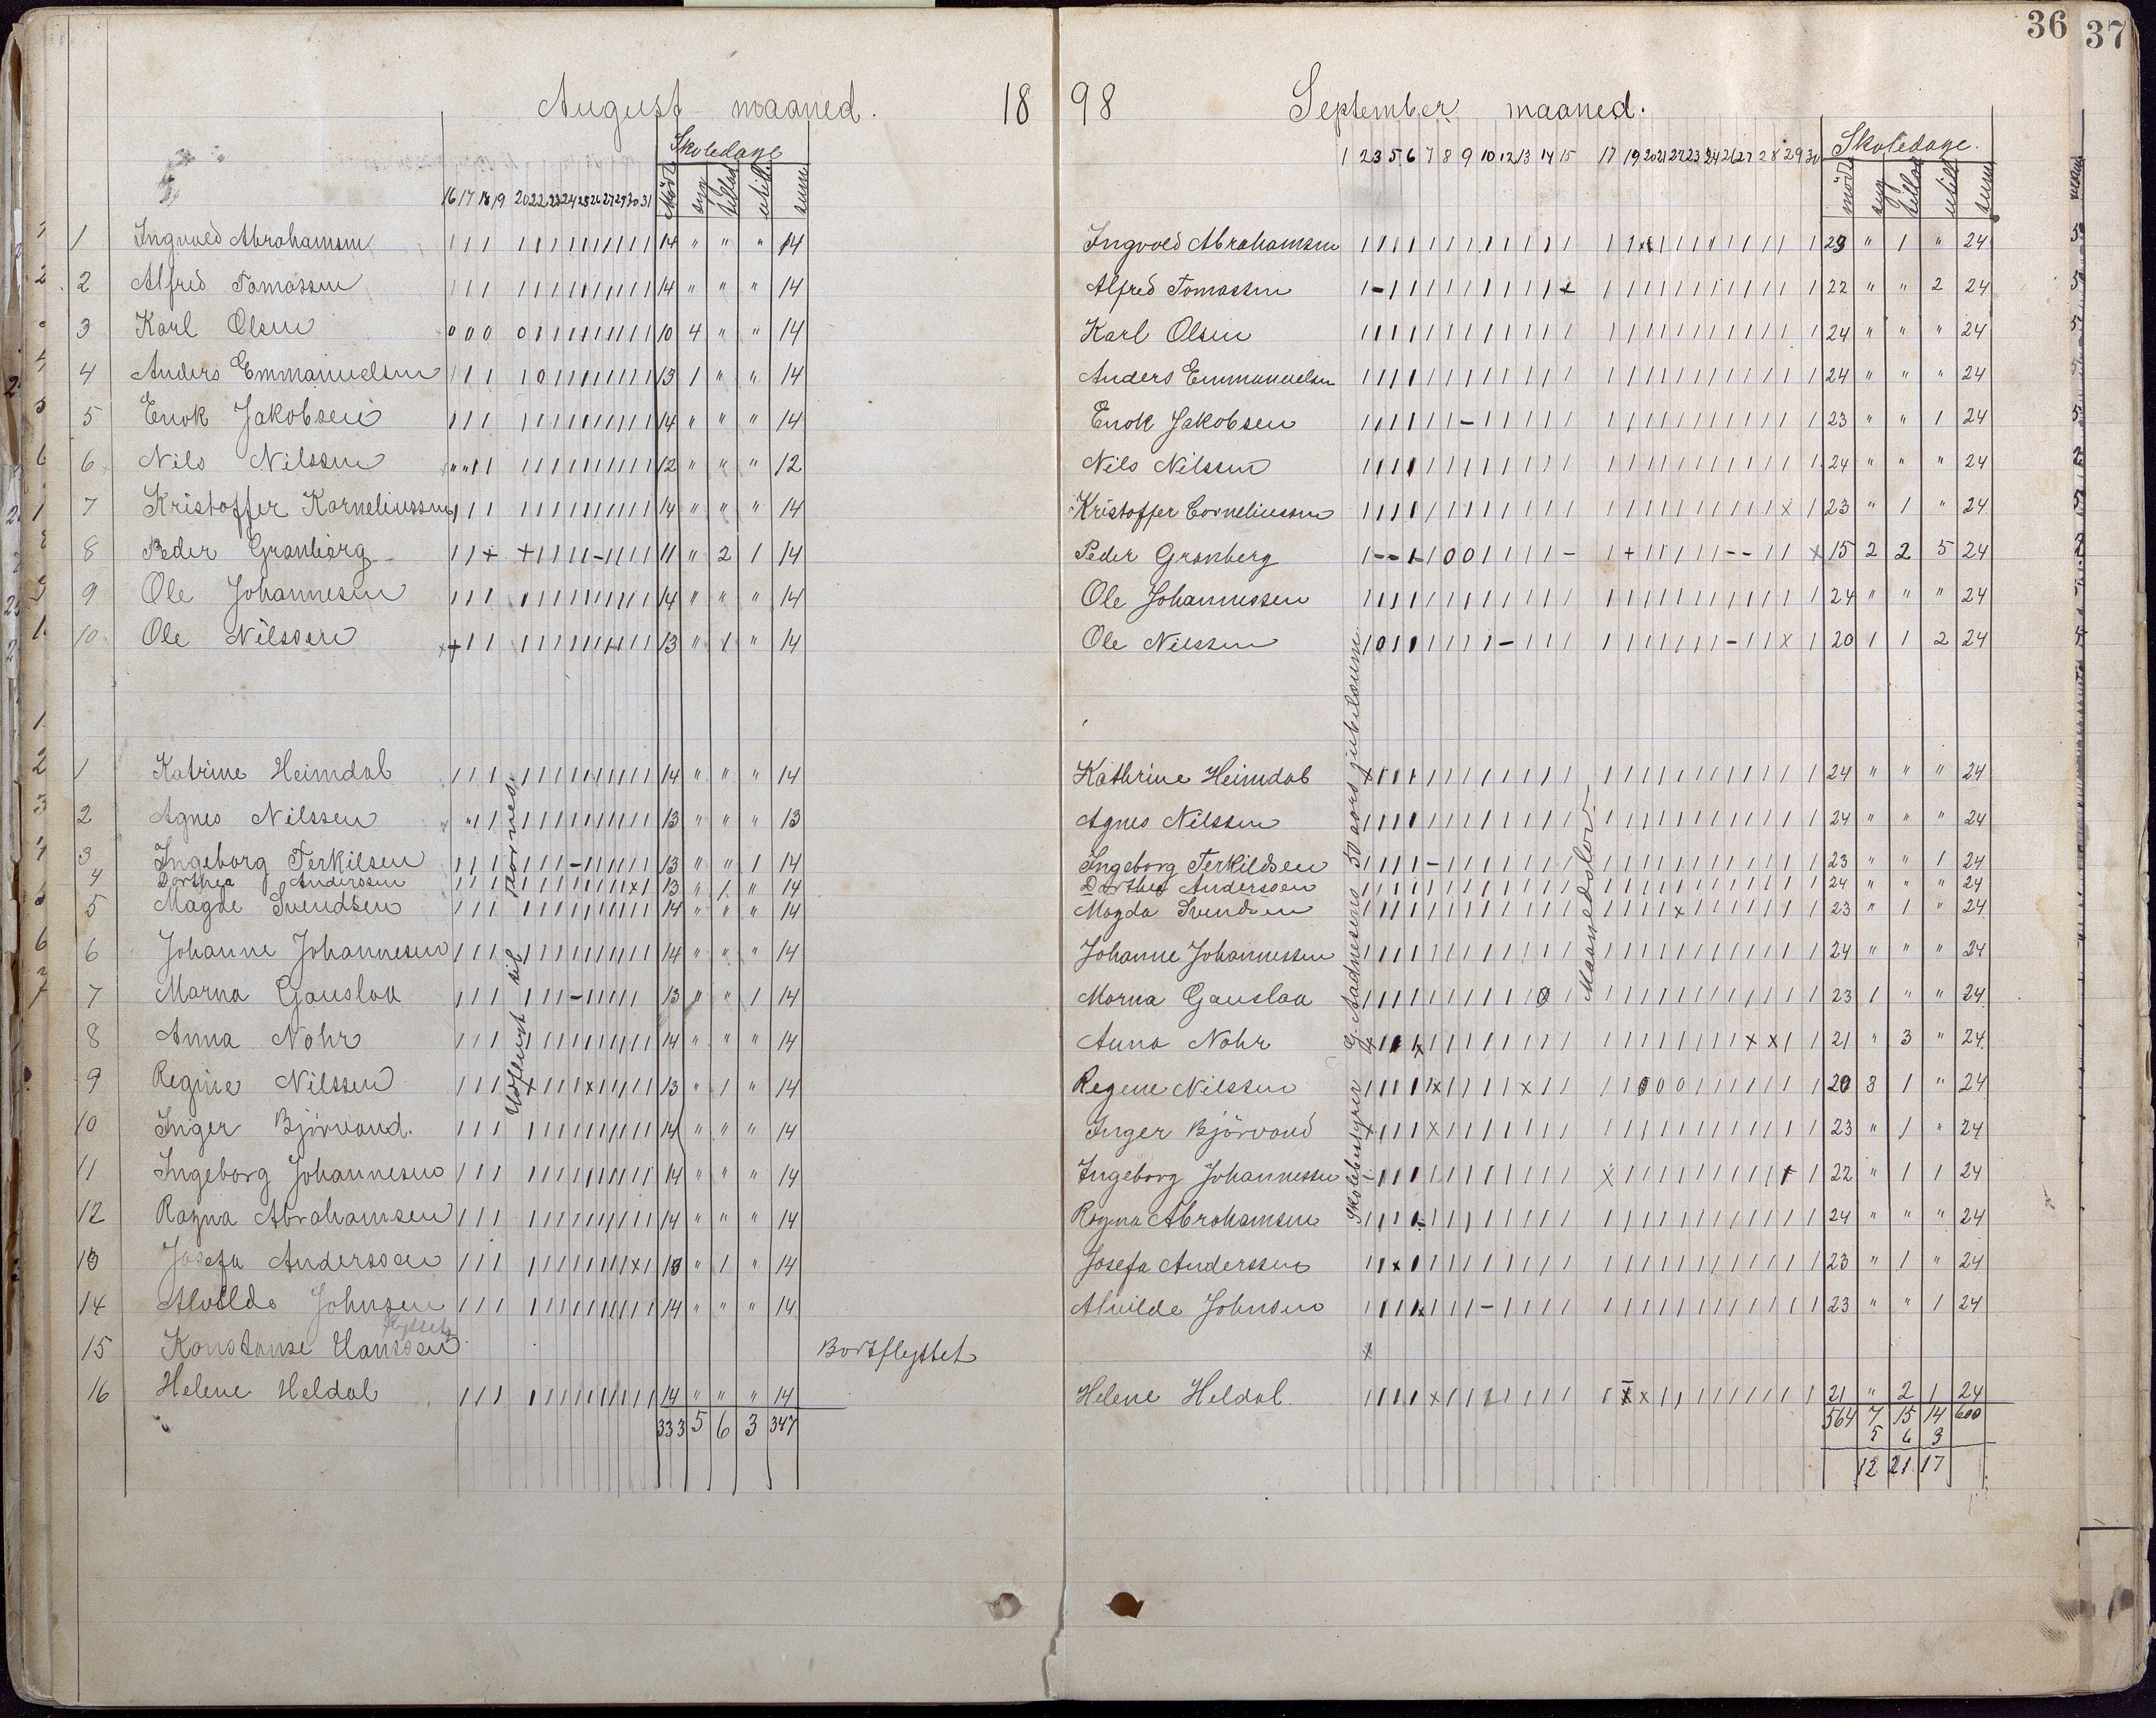 36 37
August maaned. 18
Skoledage
16 17 18 19 20 22 23 24 25 26 27 29 30 31 mödt syg tillad. utill. sum
1 Ingvold Abrahamsen 14 " " " 14
2 Alfred Tomassen 14 " " " 14
3 Karl Olsen 0 0 0 0 10 4 " " 14
4 Anders Emmanuelsen 13 1 " " 14
5 Enok Jakobsen 14 " " " 14
6 Nils Nilssen 12 " " " 12
7 Kristoffer Korneliussen 14 " " " 14
8 Peder Granberg 11 " 2 1 14
9 Ole Johannesen 14 " " " 14
10 Ole Nilssen 13 " 1 " 14
1 Katrine Heimdal 14 " " " 14
2 Agnes Nilssen 13 " " " 13
3 Ingeborg Terkilsen 13 " " 1 14
4 Dorthea Anderssen 13 " 1 " 14
5 Magda Svendsen 14 " " " 14
6 Johanne Johannesen 14 " " " 14
7 Marna Gauslaa 13 " " 1 14
8 Anna Nohr 14 " " " 14
9 Regine Nilssen 13 " 1 " 14
10 Inger Bjørvand. 14 " " " 14
11 Ingeborg Johannesen 14 " " " 14
12 Ragna Abrahamsen 14 " " " 14
13 Josefa Anderssen 13 " 1 " 14
14 Alvilde Johnsen 14 " " " 14
flyttet
15 Konstanse Hanssen Bortflyttet
16 Helene Heldal 14 " " " 14
333 5 6 3 347
Udflugt til
98 September maaned.
Skoledage.
1 2 3 5 6 7 8 9 10 12 13 14 15 17 19 20 21 22 23 24 26 27 28 29 30 mödt syg tillad utill sum
Ingvold Abrahamsen 23 " 1 " 24
Alfred Tomassen 22 " " 2 24
Karl Olsen 24 " " " 24
Anders Emmanuelsen 24 " " " 24
Enok Jakobsen 23 " " 1 24
Nils Nilssen 24 " " " 24
Kristoffer Corneliussen 23 " 1 " 24
Peder Granberg 15 2 2 5 24
Ole Johannessen 24 " " " 24
Ole Nilssen 20 1 1 2 24
Kathrine Heimdal 24 " " " 24
Agnes Nilssen 24 " " " 24
Ingeborg Terkildsen 23 " " 1 24
Dorthea Anderssen 24 " " " 24
Magda Svendsen 23 " 1 " 24
Johanne Johannessen 24 " " " 24
Marna Gauslaa 23 1 " " 24
Anna Nohr 21 " 3 " 24
Regine Nilssen 20 3 1 " 24
Inger Björvand 23 " 1 " 24
Ingeborg Johannessen 22 " 1 1 24
Ragna Abrahamsen 24 " " " 24
Josefa Anderssen 23 " 1 " 24
Alvilde Johnsen 23 " " 1 24
Helene Heldal. 21 " 2 1 24
564 7 15 14 600
5 6 3
12 21 17
Skolebestyrer G. Aadnesens 50 aars jubilæum.
Maanedslov.